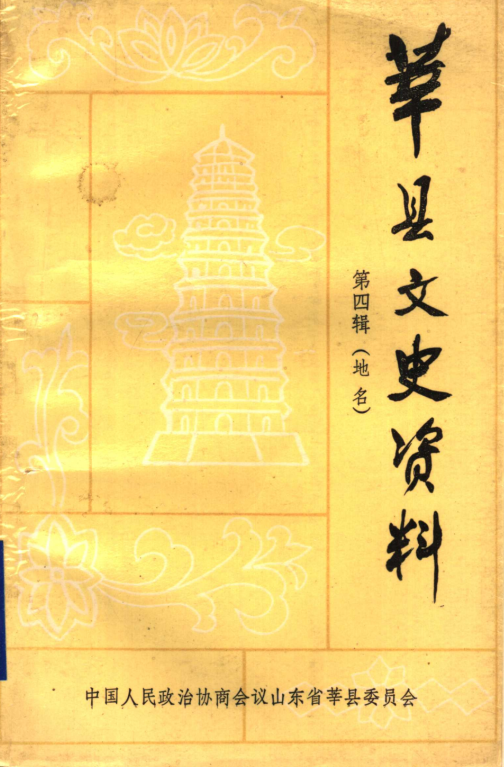 莘县文史资料
第四辑（地名）
中国人民政治协商会议山东省莘县委员会